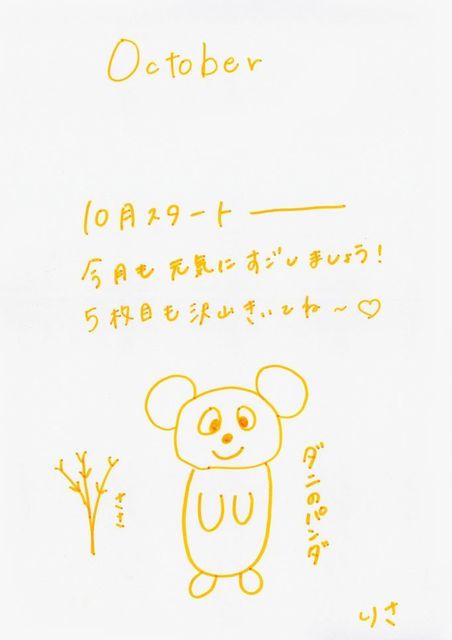 October
10月スタート ―――
今月も元気にすごしましょう!
5枚目も沢山きいてね～♡
ささ
ダニのパンダ
りさ